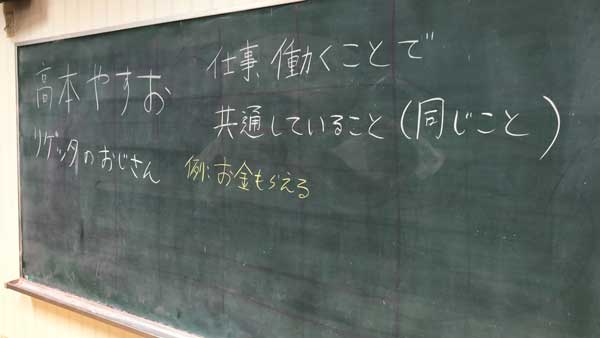 高本やすお
リゲッタのおじさん
仕事、働くことで
共通していること(同じこと)
例:お金もらえる